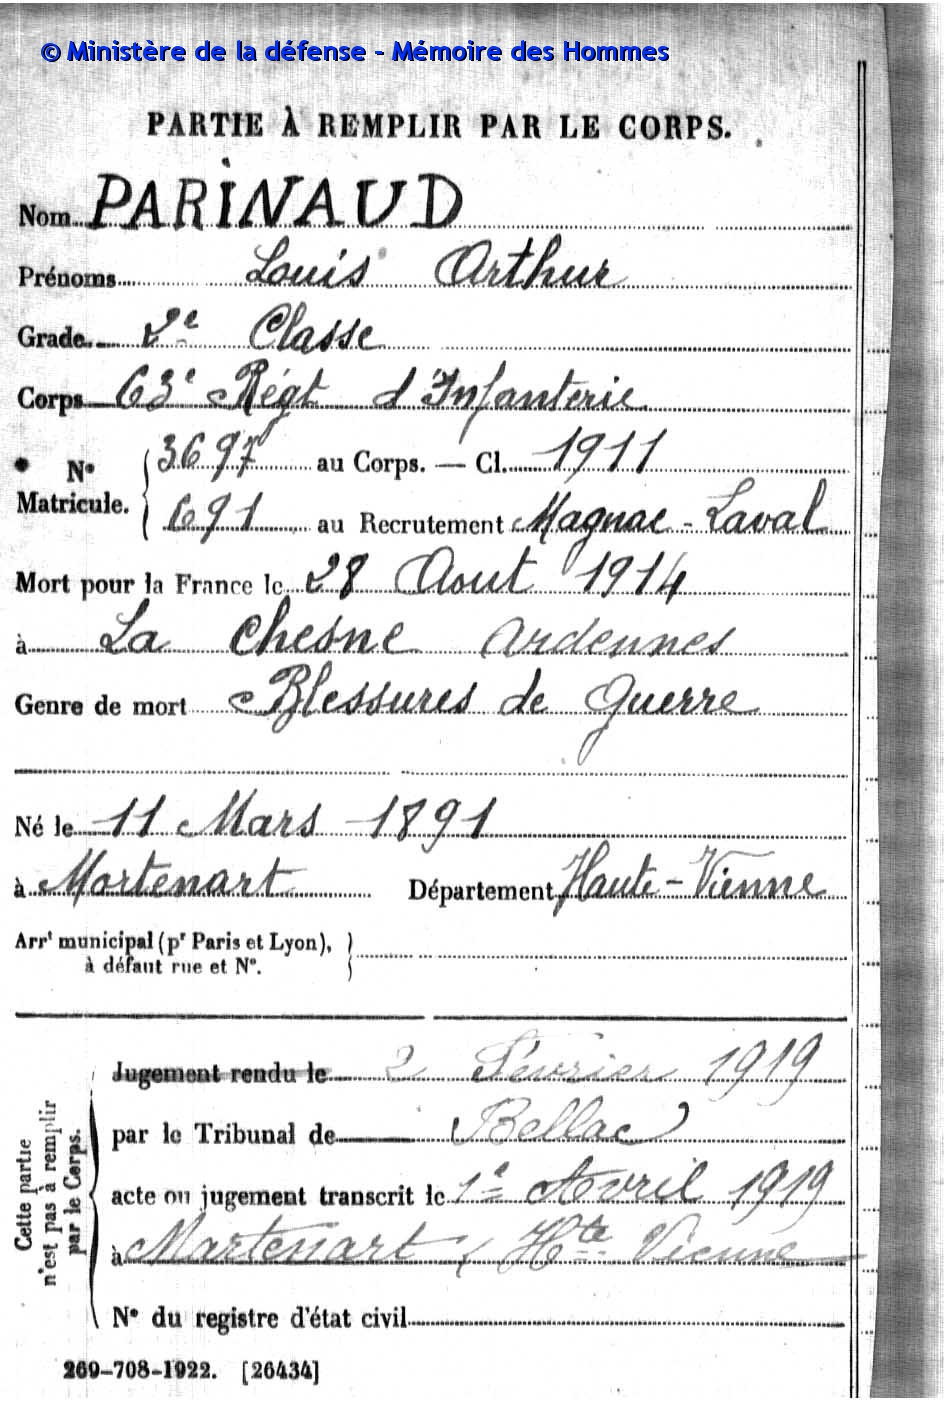 © Ministère de la défense - Mémoire des Hommes
PARTIE À REMPLIR PAR LE CORPS.
Nom PARINAUD
Prénoms Louis Arthur
Grade 2e Classe
Corps 63e Régt d'Infanterie
N° Matricule. 3697 au Corps. — Cl. 1911
691 au Recrutement Magnac-Laval
Mort pour la France le 28 Aout 1914
à La Chesne Ardennes
Genre de mort Blessures de Guerre
Né le 11 Mars 1891
à Mortenart Département Haute-Vienne
Arrt municipal (pr Paris et Lyon),
à défaut rue et N°.
Cette partie n'est pas à remplir par le Corps.
Jugement rendu le 2 Février 1919
par le Tribunal de Bellac
acte ou jugement transcrit le 1e Avril 1919
à Martenart Hte Vienne
N° du registre d'état civil
269-708-1922. [26434]